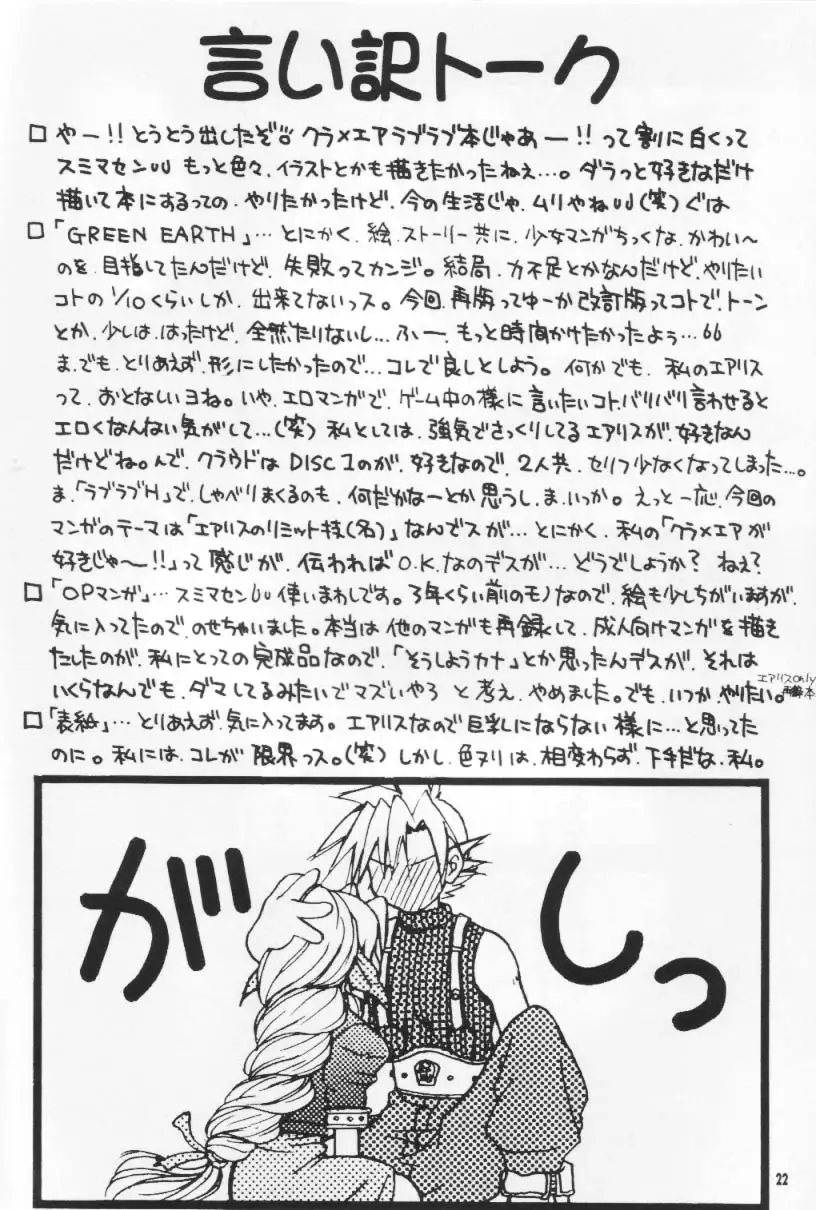 言い訳トーク
□ やー!!とうとう出したぞ クラ×エアラブラブ本じゃあー!!って割に白くって
スミマセン もっと色々、イラストとかも描きたかったねぇ…。ダラっと好きなだけ
描いて本にするっての、やりたかったけど、今の生活じゃ、ムリやね(笑)ぐは
□ 「GREEN EARTH」…とにかく、絵、ストーリー共に、少女マンガちっくな、かわい〜
のを、目指してたんだけど、失敗ってカンジ。結局、力不足とかなんだけど、やりたい
コトの1/10くらいしか、出来てないっス。今回、再版ってゆーか改訂版ってコトで、トーン
とか、少しは、はったけど、全然たりないし…ふー、もっと時間かけたかったよぅ…
ま、でも、とりあえず、形にしたかったので…コレで良しとしよう。何かでも、私のエアリス
って、おとなしいヨね。いや、エロマンガで、ゲーム中の様に言いたいコト、バリバリ言わせると
エロくなんない気がして…(笑)私としては、強気でさっくりしてるエアリスが、好きなん
だけどね。んで、クラウドはDISC1のが、好きなので、2人共、セリフ少なくなってしまった…。
ま、「ラブラブH」で、しゃべりまくるのも、何だかなーとか思うし、ま、いっか。えっと一応、今回の
マンガのテーマは「エアリスのリミット技(名)」なんでスが…とにかく、私の「クラ×エアが
好きじゃ〜!!」って感じが、伝わればO.K.なのデスが…どうでしょうか?ねぇ?
□ 「OPマンガ」…スミマセン 使いまわしです。3年くらい前のモノなので、絵も少しちがいますが、
気に入ってたので、のせちゃいました。本当は他のマンガも再録して、成人向けマンガを描き
たしたのが、私にとっての完成品なので、「そうしようカナ」とか思ったんデスが、それは
いくらなんでも、ダマしてるみたいでマズいやろ と考え、やめました。でも、いつか、やりたい。
エアリスonly
再録本
□ 「表紙」…とりあえず、気に入ってます。エアリスなので巨乳にならない様に…と思ってた
のに。私には、コレが限界っス。(笑)しかし、色ヌリは、相変わらず、下手だな、私。
がしっ
22